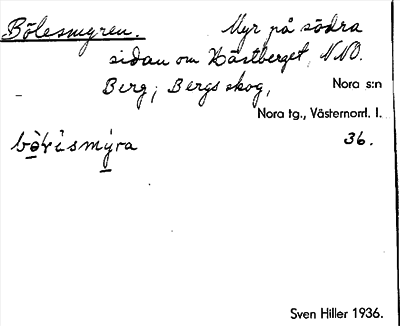 Bölesmyren. Myr på södra
sidan om Hästberget, NNO.
Berg; Bergs skog, Nora s:n
Nora tg., Västernorrl. l.
36.
Sven Hiller 1936.